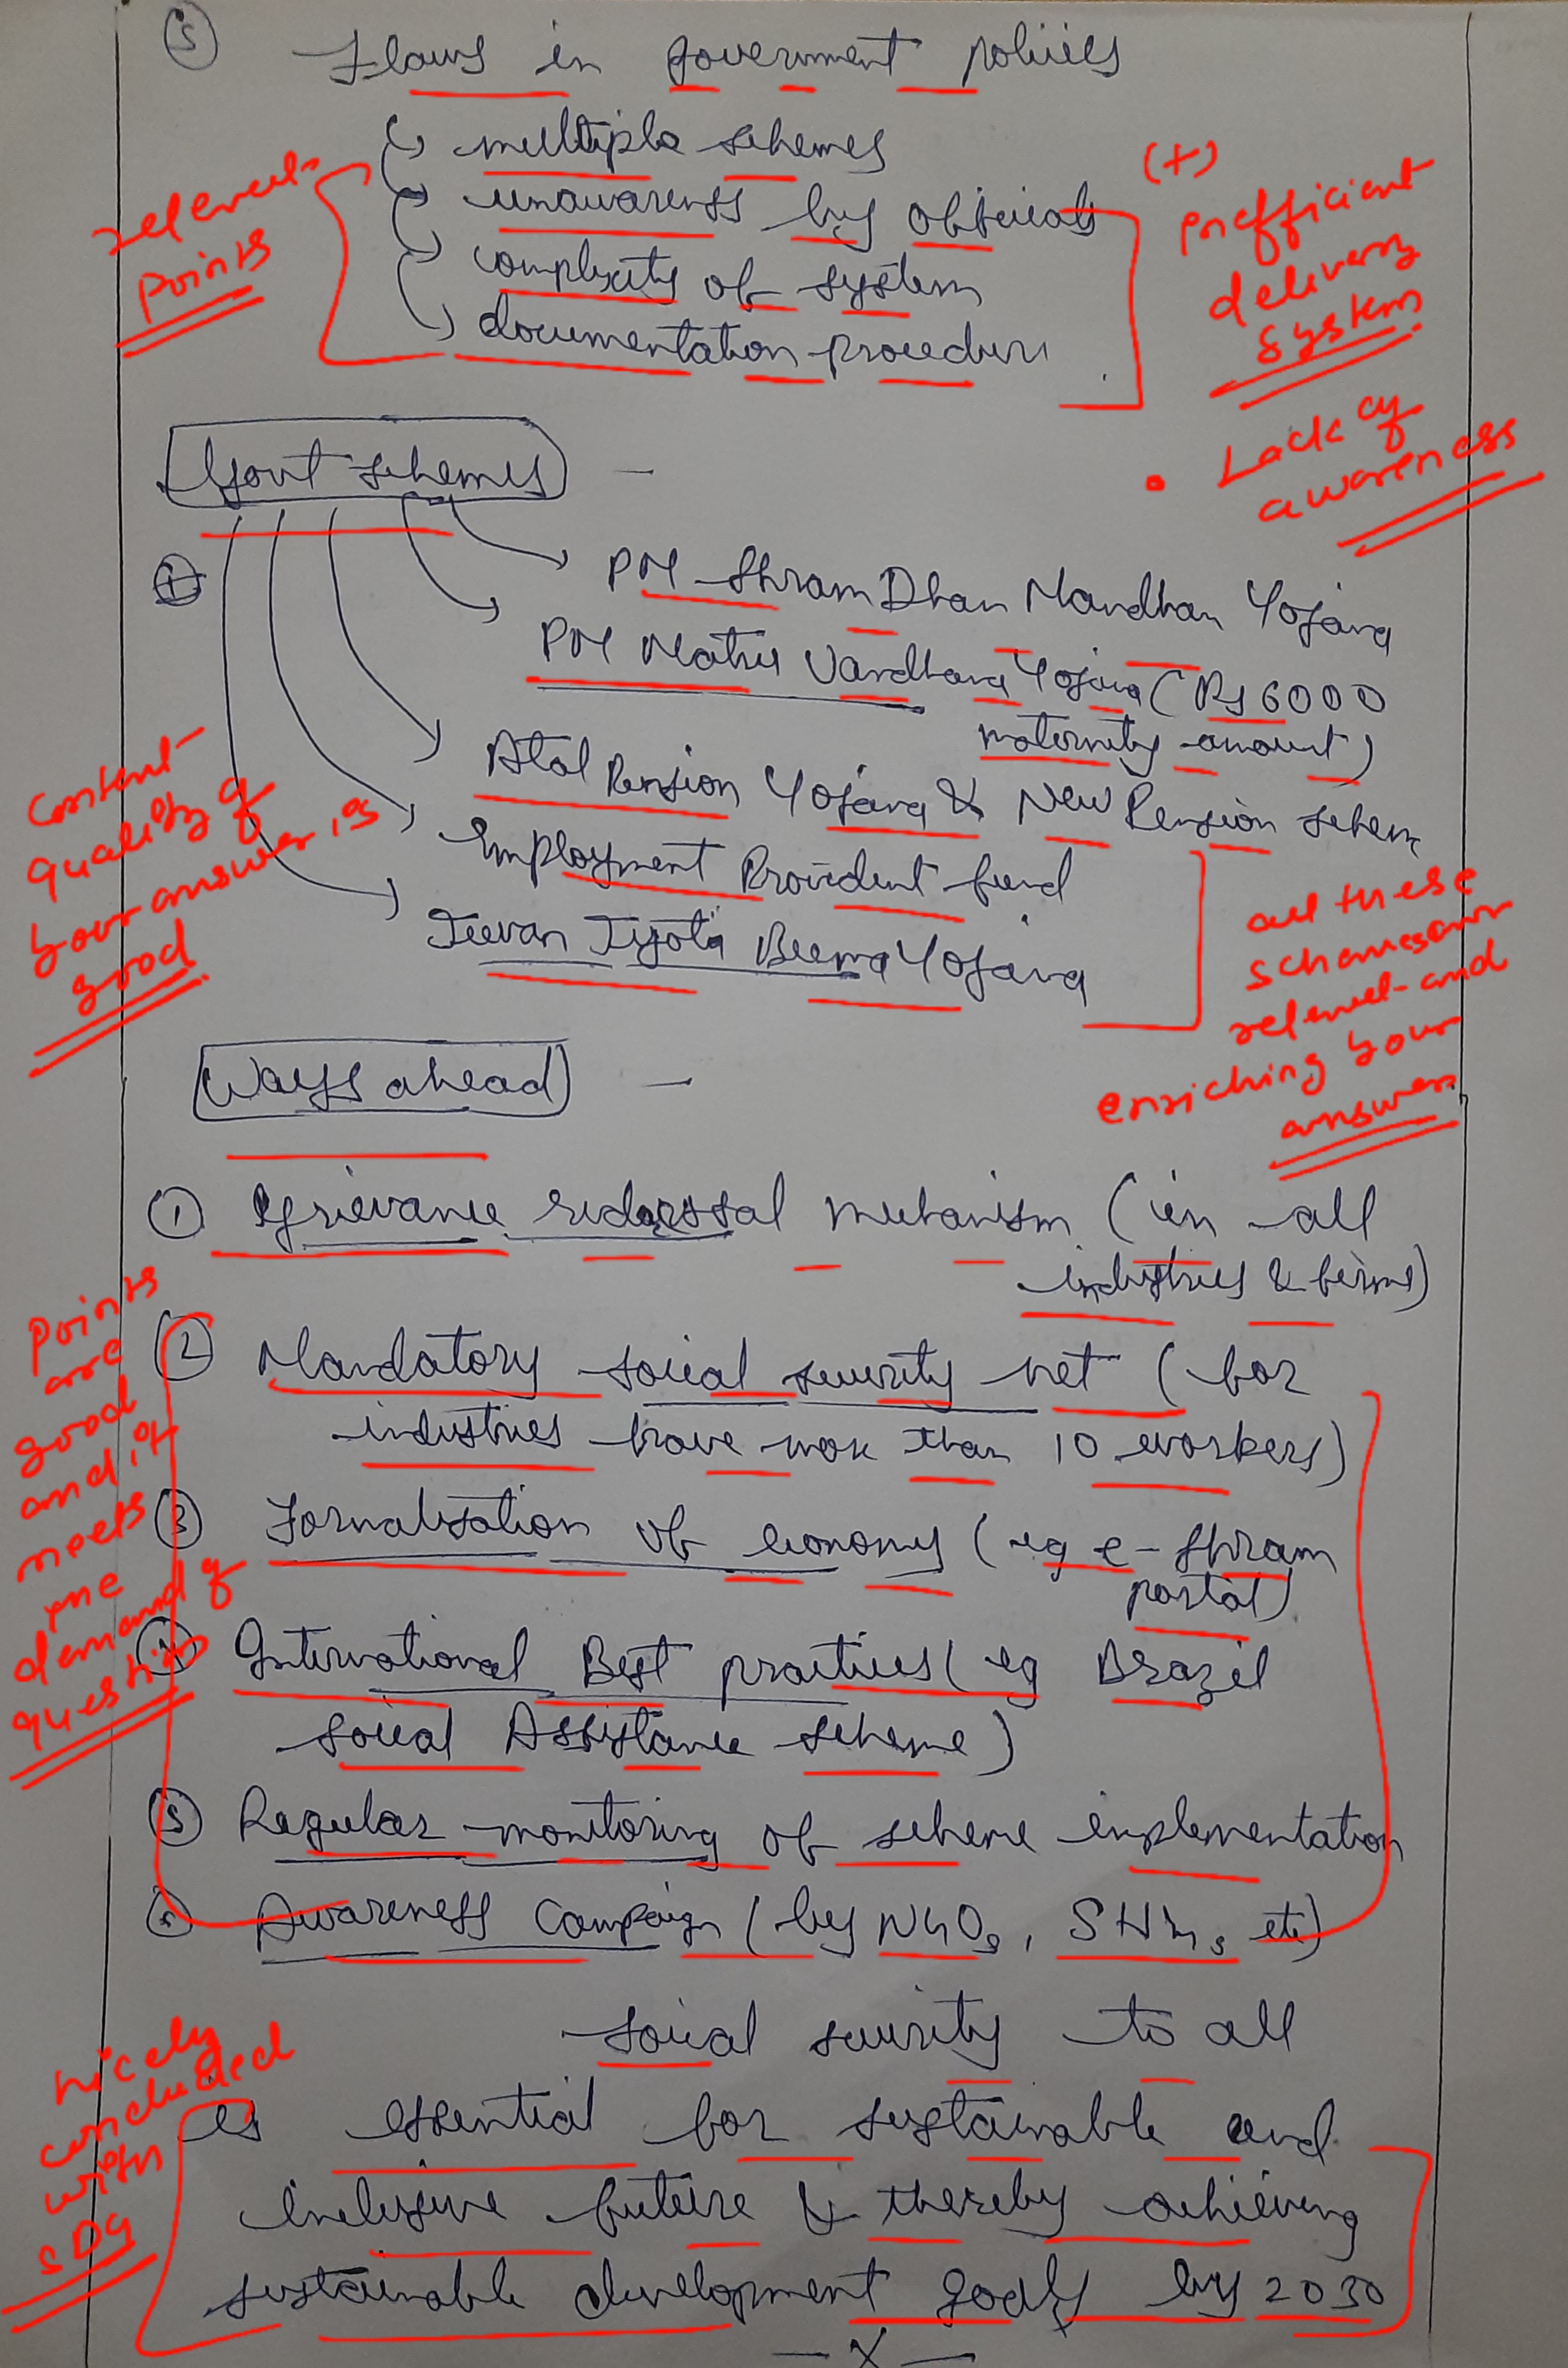 5 Flaws in government policies
multiple schemes
unawareness by officials
complexity of system
documentation procedure
relevent
points
(+)
inefficient
delivery
system
• Lack of
awareness
Govt schemes -
1
PM Shram Dhan Mandhan Yojana
PM Matru Vandhana Yojana (Rs 6000
maternity amount)
Atal Pension Yojana & New Pension scheme
Employment Provident fund
Jeevan Jyoti Beema Yojana
content
quality of
your answer is
good
all these
schemes are
relevent and
enriching your
answer
Ways ahead -
1 Grievance redressal mechanism (in all
industries & firms)
2 Mandatory social security net (for
industries have more than 10 workers)
3 Formalisation of economy (eg e-Shram
portal)
4 International Best practices (eg Brazil
social Assistance scheme)
5 Regular monitoring of scheme implementation
6 Awareness Campaign (by NGOs, SHGs etc)
points
are
good
and it
meets
the
demand of
question
social security to all
is essential for sustainable and
inclusive future & thereby achieving
sustainable development goals by 2030
- X -
nicely
concluded
with
SDG